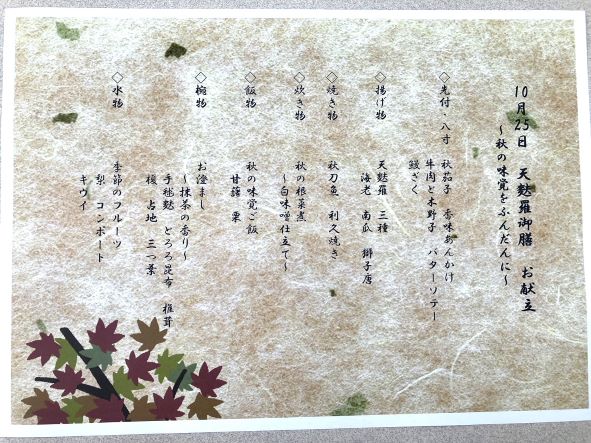 10月25日 天麩羅御膳 お献立
～秋の味覚をふんだんに～
◇先付・八寸 秋茄子 香味あんかけ
牛肉と木野子 バターソテー
鰻ざく
◇揚げ物 天麩羅 三種
海老 南瓜 獅子唐
◇焼き物 秋刀魚 利久焼き
◇炊き物 秋の根菜煮
～白味噌仕立て～
◇飯物 秋の味覚ご飯
甘藷 栗
◇椀物 お澄まし
～抹茶の香り～
手毬麩 とろろ昆布 椎茸
占地 三つ葉
◇水物 季節のフルーツ
梨 コンポート
キウイ